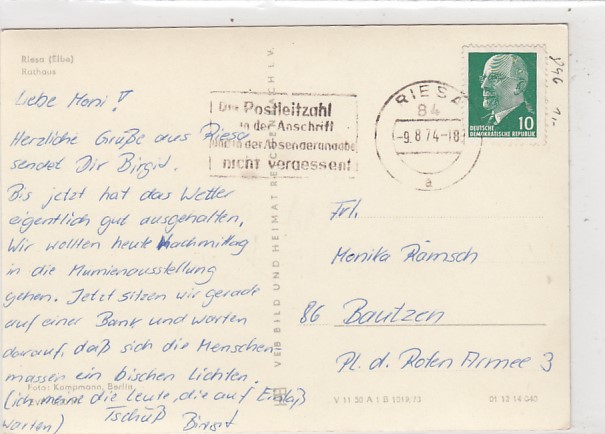 Riesa (Elbe)
Rathaus
Liebe Moni!
Herzliche Grüße aus Riesa
sendet Dir Birgit.
Bis jetzt hat das Wetter
eigentlich gut ausgehalten.
Wir wollten heute Nachmittag
in die Mumienausstellung
gehen. Jetzt sitzen wir gerade
auf einer Bank und warten
darauf, daß sich die Menschen
massen ein bischen lichten.
(ich meine die Leute, die auf Einlaß
warten) Tschüß Birgit
Foto: Kampmann, Berlin
VEB BILD UND HEIMAT REICHENBACH I. V.
Die Postleitzahl
in der Anschrift
und in der Absenderangabe
nicht vergessen!
RIESA
84
-9.8.74-18
a
10
DEUTSCHE
DEMOKRATISCHE REPUBLIK
Frl.
Monika Rämsch
86 Bautzen
Pl. d. Roten Armee 3
V 11 30 A 1 B 1019/73
01 12 14 040